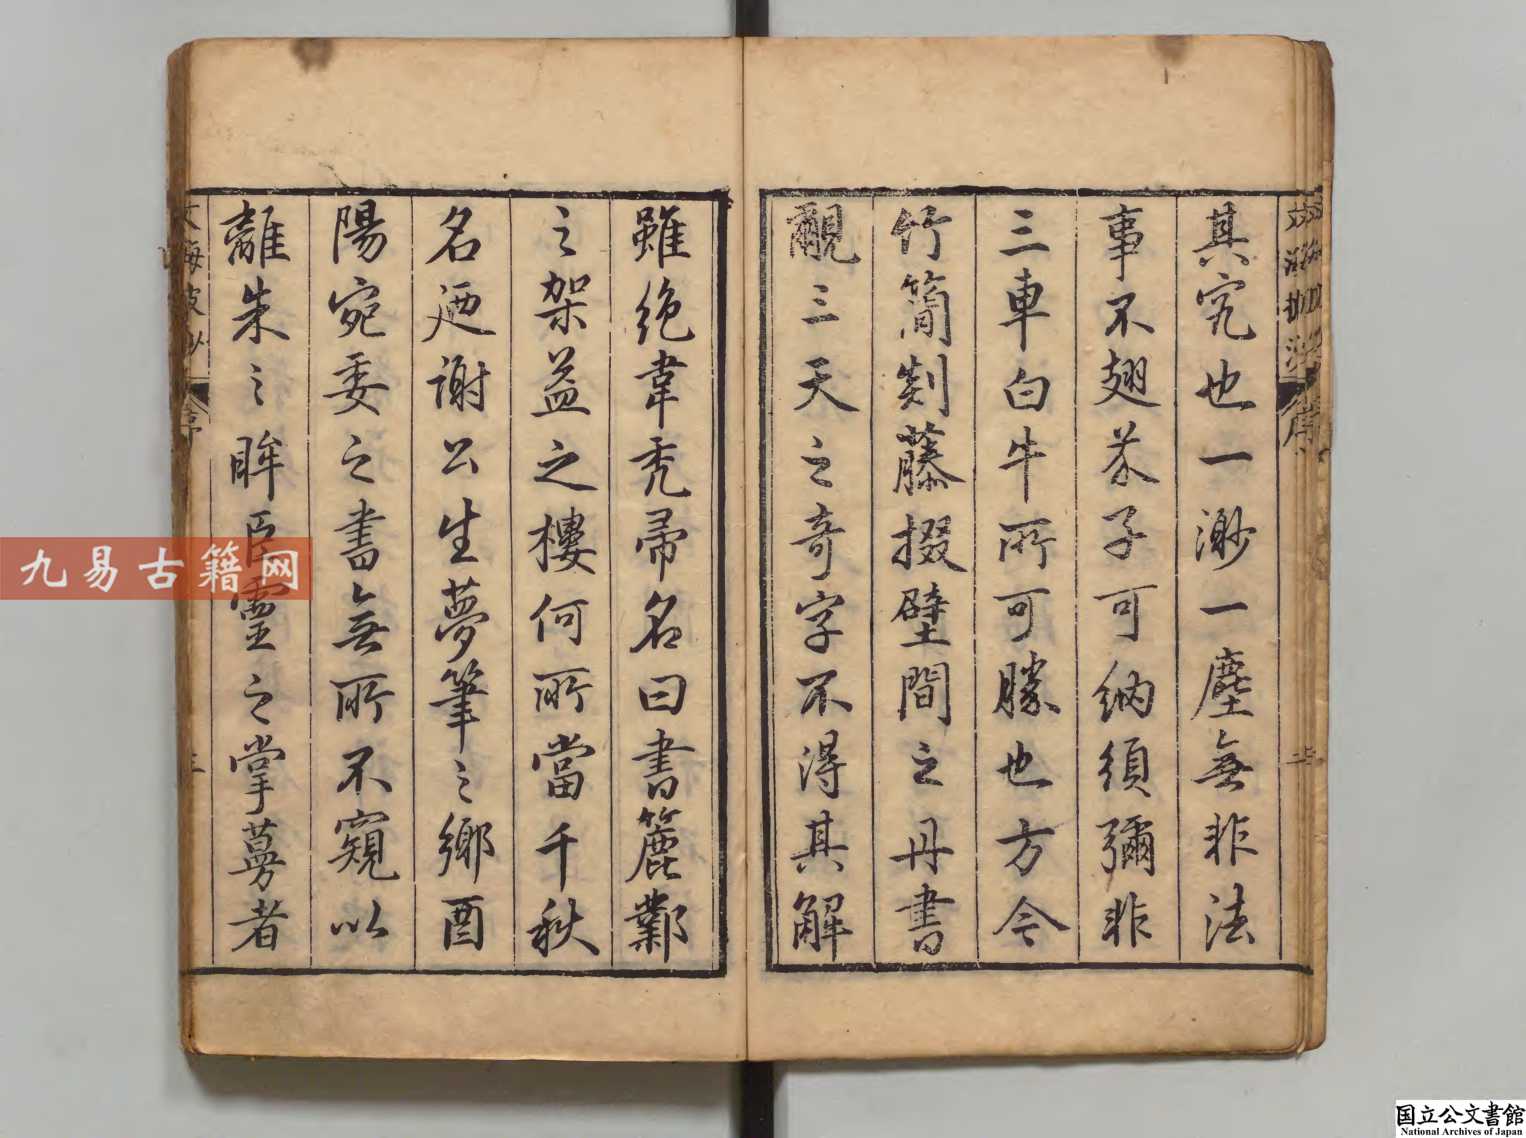 其究也一渺一塵無非法
事不翅芥子可納須彌非
三車白牛所可勝也方今
竹簡剡藤掇壁間之丹書
覼三天之奇字不得其解
雖絶韋禿帚名曰書簏鄴
之架益之樓何所當千秋
名迺謝公生夢筆之鄉酉
陽宛委之書無所不窺以
離朱之眸臣靈之掌蒡者
序
三
九易古籍网
国立公文書館
National Archives of Japan